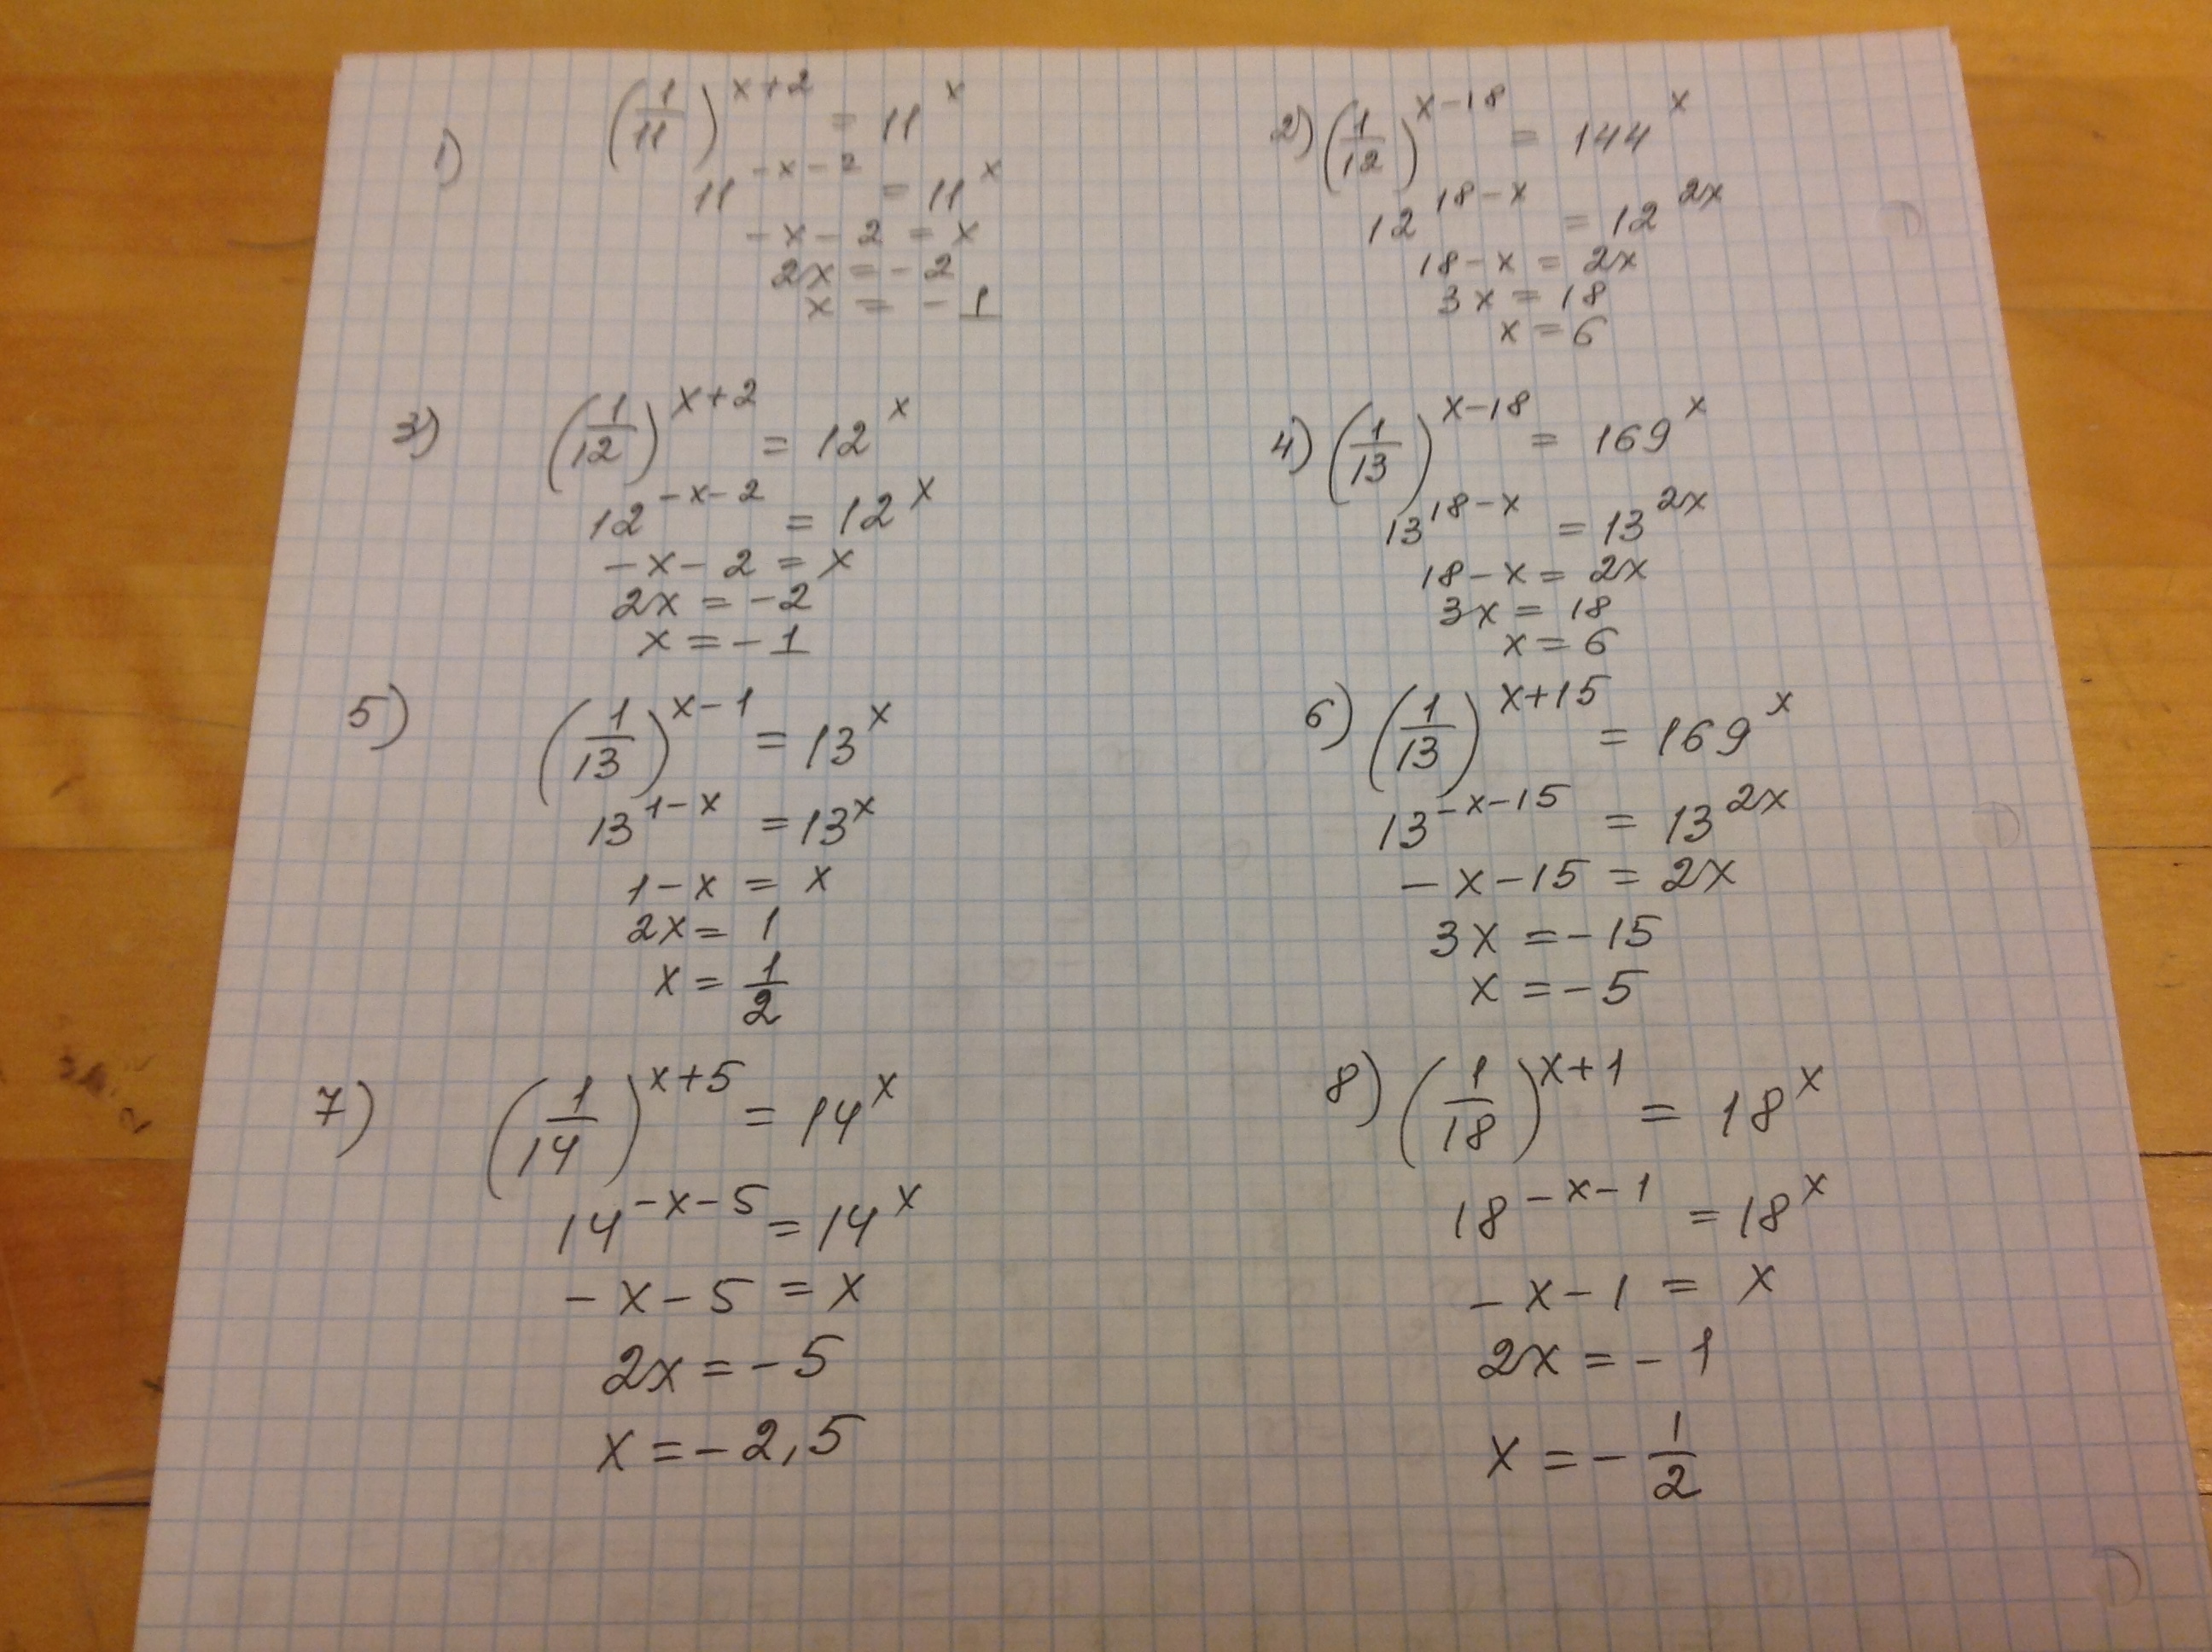 1) (1/11)^(x+2) = 11^x
11^(-x-2) = 11^x
-x-2 = x
2x = -2
x = -1
2) (1/12)^(x-18) = 144^x
12^(18-x) = 12^(2x)
18-x = 2x
3x = 18
x = 6
3) (1/12)^(x+2) = 12^x
12^(-x-2) = 12^x
-x-2 = x
2x = -2
x = -1
4) (1/13)^(x-18) = 169^x
13^(18-x) = 13^(2x)
18-x = 2x
3x = 18
x = 6
5) (1/13)^(x-1) = 13^x
13^(1-x) = 13^x
1-x = x
2x = 1
x = 1/2
6) (1/13)^(x+15) = 169^x
13^(-x-15) = 13^(2x)
-x-15 = 2x
3x = -15
x = -5
7) (1/14)^(x+5) = 14^x
14^(-x-5) = 14^x
-x-5 = x
2x = -5
x = -2,5
8) (1/18)^(x+1) = 18^x
18^(-x-1) = 18^x
-x-1 = x
2x = -1
x = -1/2